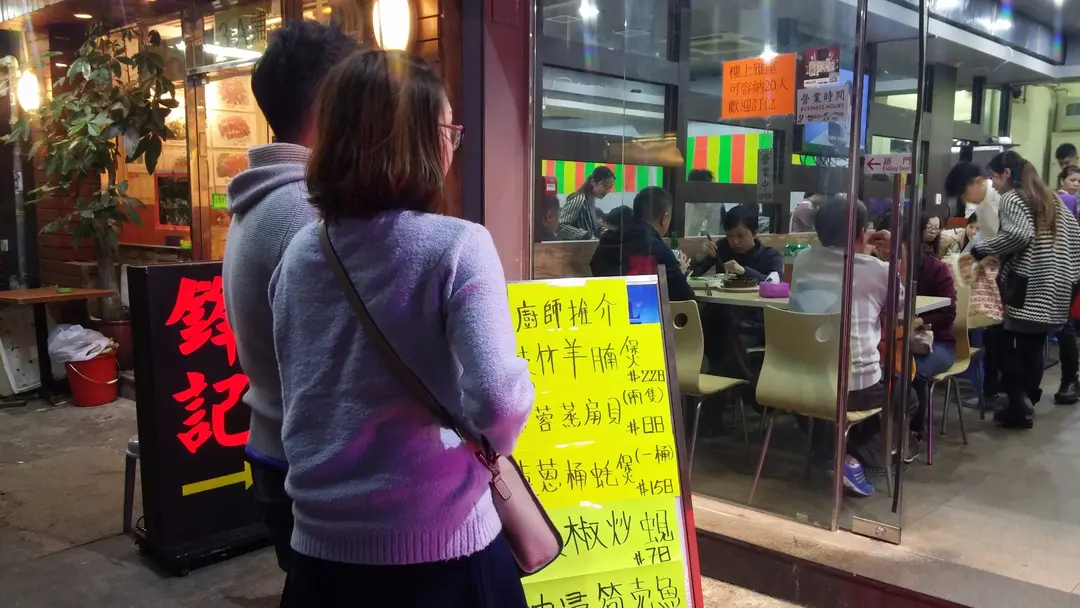 鋒記
樓上雅座
可容納20人
歡迎訂位
營業時間
BUSINESS HOURS
營業中
趟門
Folding Door
廚師推介
竹羊腩煲
#228
蓉蒸扇貝(兩隻)
#88
蔥桶蚝煲(一桶)
#158
椒炒蜆
#78